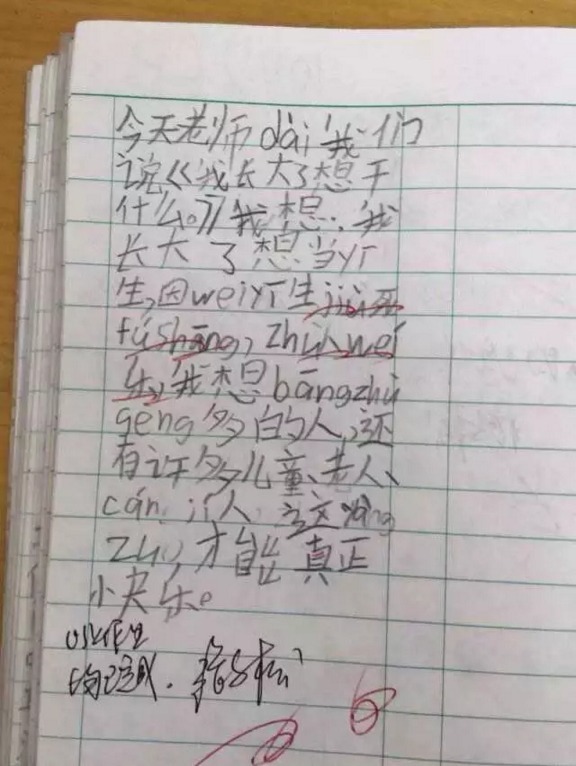 今天老师dài我们
说《我长大了想干
什么。》我想,我
长大了想当yī
生,因wei yī生jiù死
fúshāng,zhù人wéi
乐,我想bāngzhù
geng多的人,还
有许多儿童、老人、
cán jí人,这yàng
zuò,才能真正
快乐。
以上作业
均已完成.